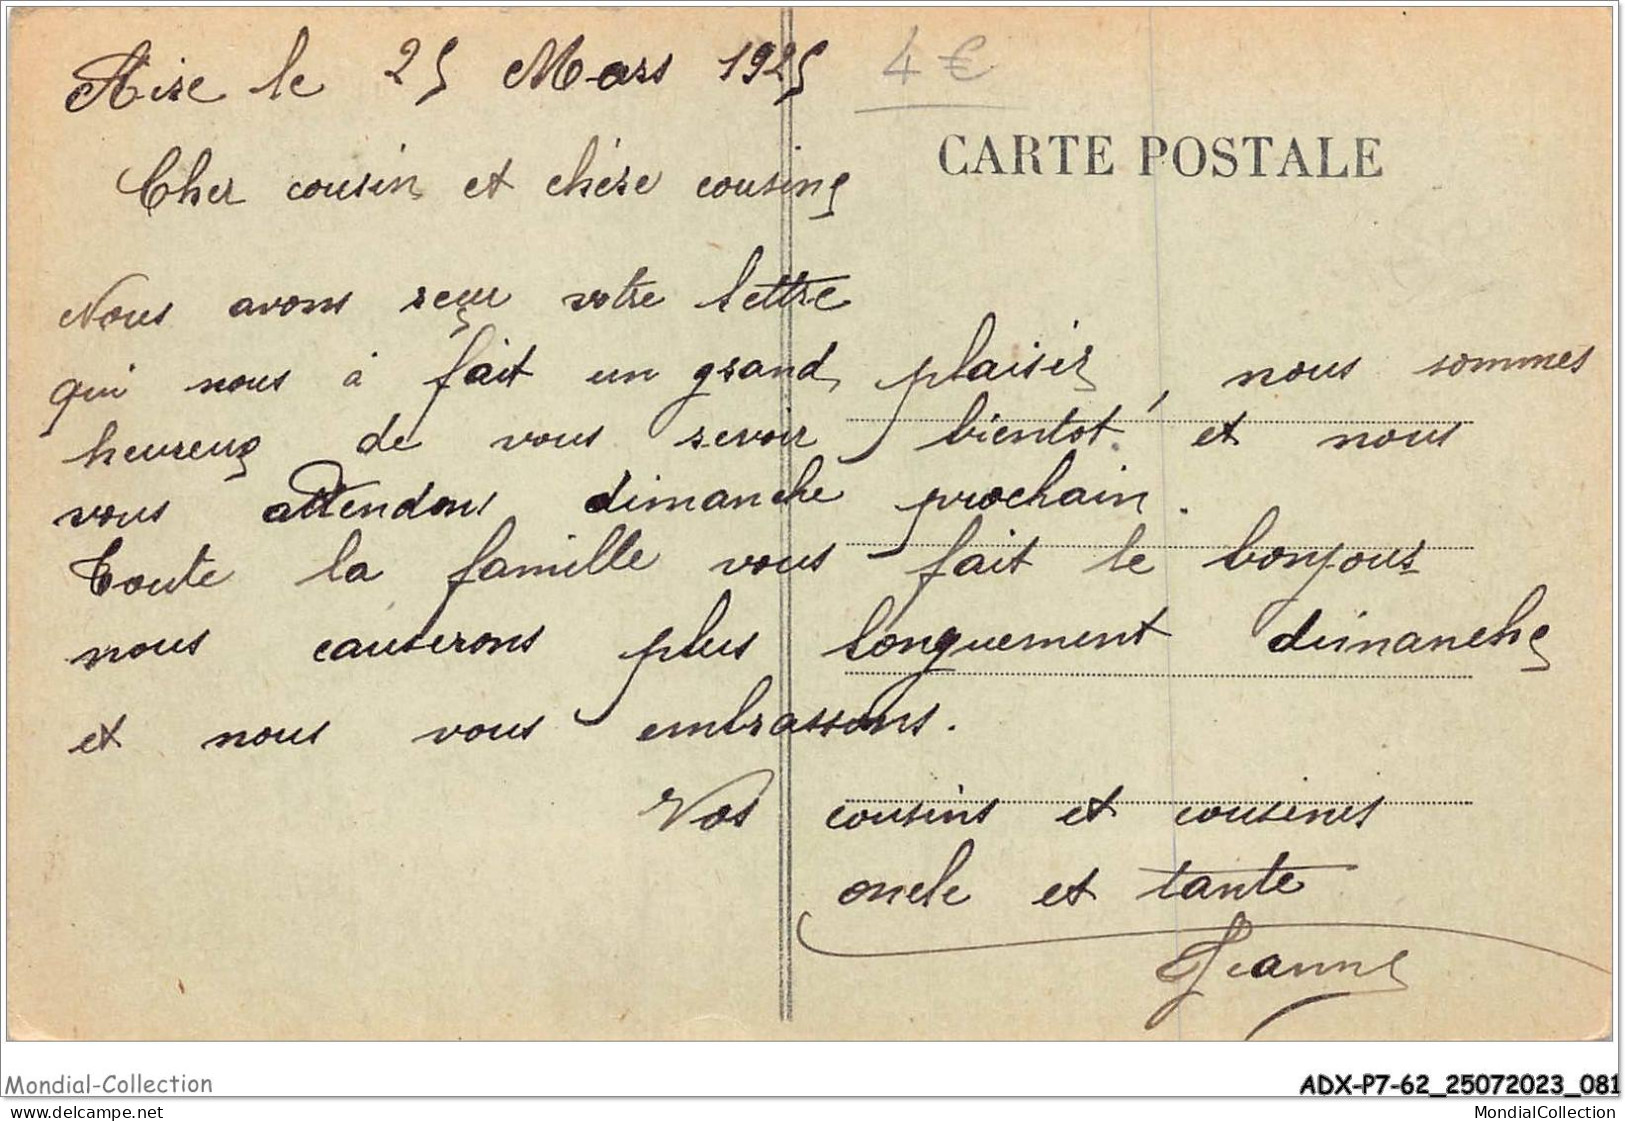 Aire le 25 Mars 1925
4 €
CARTE POSTALE
Cher cousin et chère cousine
Nous avons reçu votre lettre
qui nous à fait un grand plaisir, nous sommes
heureux de vous revoir bientot et nous
vous attendons dimanche prochain.
Toute la famille vous fait le bonjour
nous causerons plus longuement dimanche
et nous vous embrassons.
Vos cousins et cousines
oncle et tante
Jeanne
Mondial-Collection
ADX-P7-62_25072023_081
delcampe.net
MondialCollection